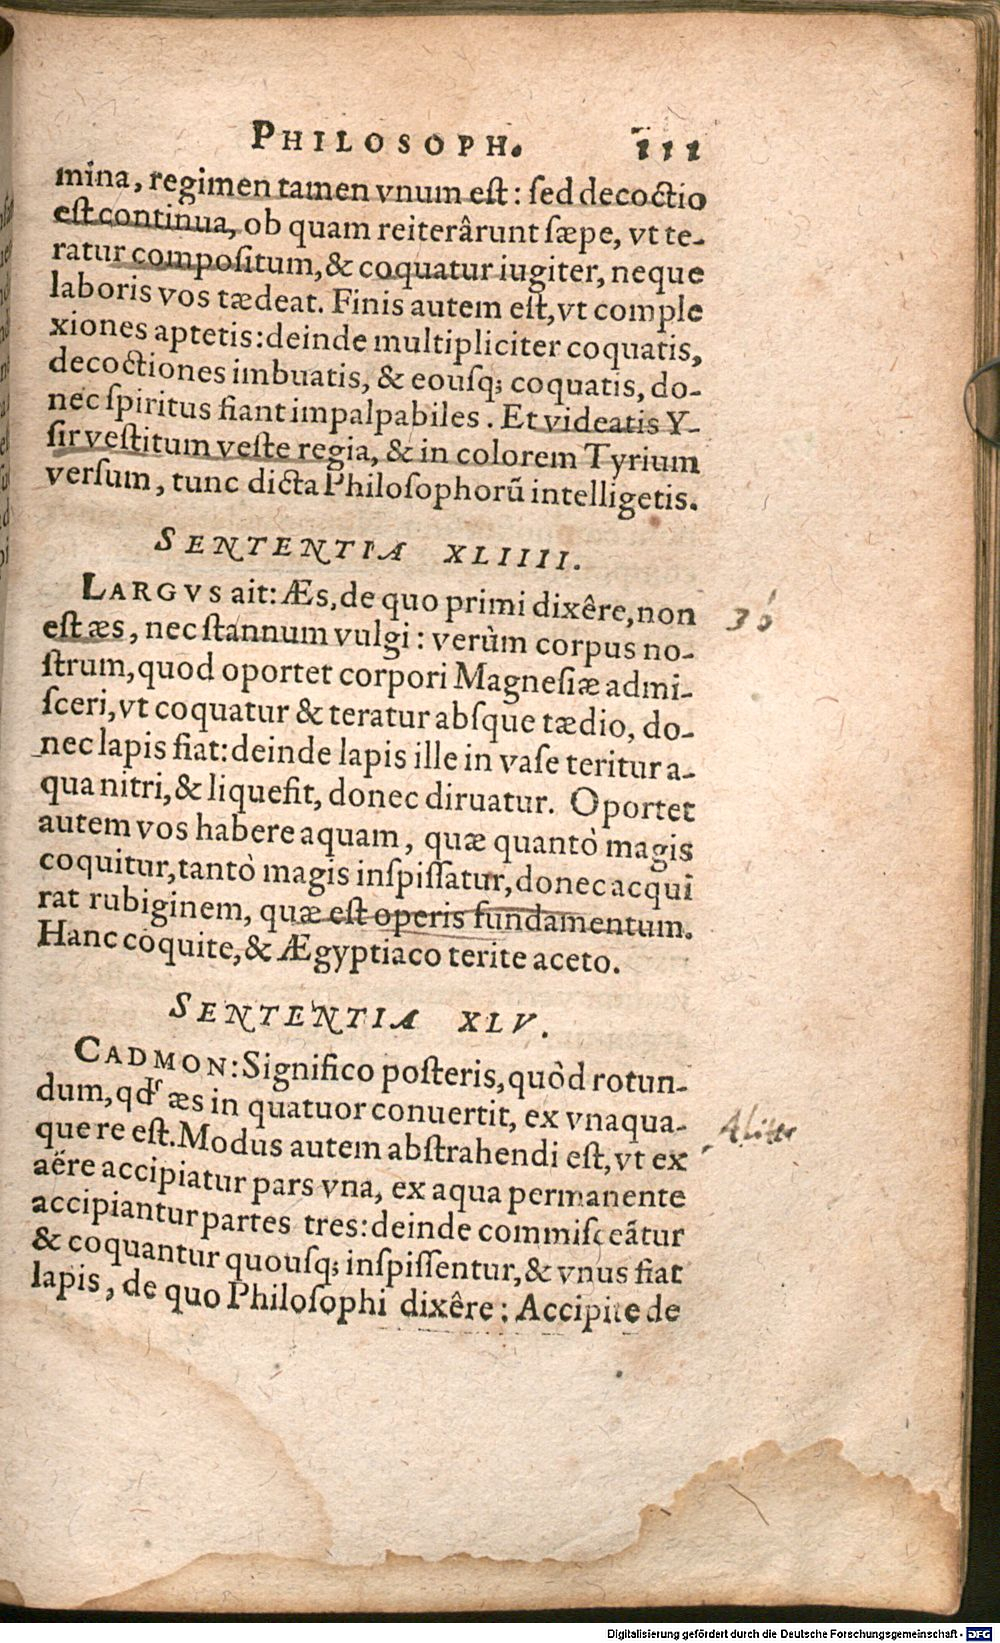 PHILOSOPH. 111
mina, regimen tamen vnum est: sed decoctio
est continua, ob quam reiterârunt sæpe, vt te-
ratur compositum, & coquatur iugiter, neque
laboris vos tædeat. Finis autem est, vt comple
xiones aptetis: deinde multipliciter coquatis,
decoctiones imbuatis, & eousq; coquatis, do-
nec spiritus fiant impalpabiles. Et videatis Y-
sir vestitum veste regia, & in colorem Tyrium
versum, tunc dicta Philosophorũ intelligetis.
SENTENTIA XLIIII.
LARGVS ait: Æs, de quo primi dixêre, non
est æs, nec stannum vulgi: verùm corpus no-
strum, quod oportet corpori Magnesiæ admi-
sceri, vt coquatur & teratur absque tædio, do-
nec lapis fiat: deinde lapis ille in vase teritur a-
qua nitri, & liquefit, donec diruatur. Oportet
autem vos habere aquam, quæ quantò magis
coquitur, tantò magis inspissatur, donec acqui
rat rubiginem, quæ est operis fundamentum.
Hanc coquite, & Ægyptiaco terite aceto.
SENTENTIA XLV.
CADMON: Significo posteris, quòd rotun-
dum, qď æs in quatuor conuertit, ex vnaqua-
que re est. Modus autem abstrahendi est, vt ex
aëre accipiatur pars vna, ex aqua permanente
accipiantur partes tres: deinde commisceãtur
& coquantur quousq; inspissentur, & vnus fiat
lapis, de quo Philosophi dixêre: Accipite de
Aliter
Digitalisierung gefördert durch die Deutsche Forschungsgemeinschaft - DFG